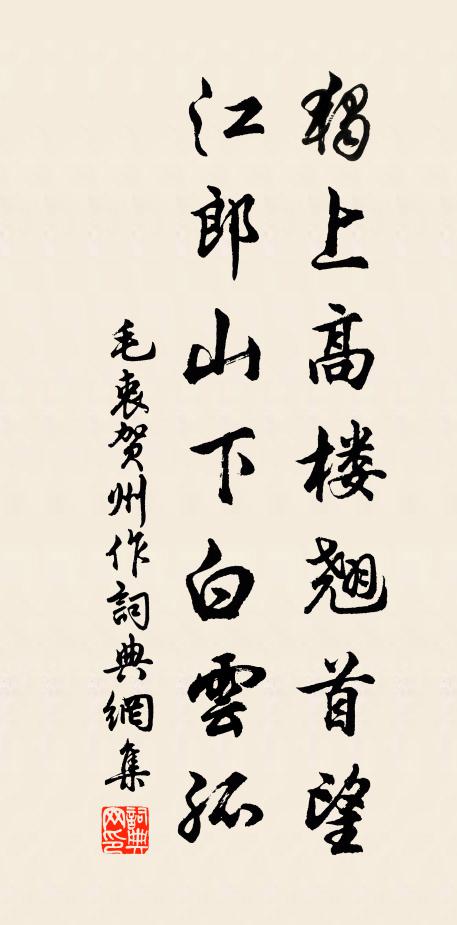 獨上高楼翹首望
江郎山下白雲孤
毛衷賀州作詞典網集
詞典網印